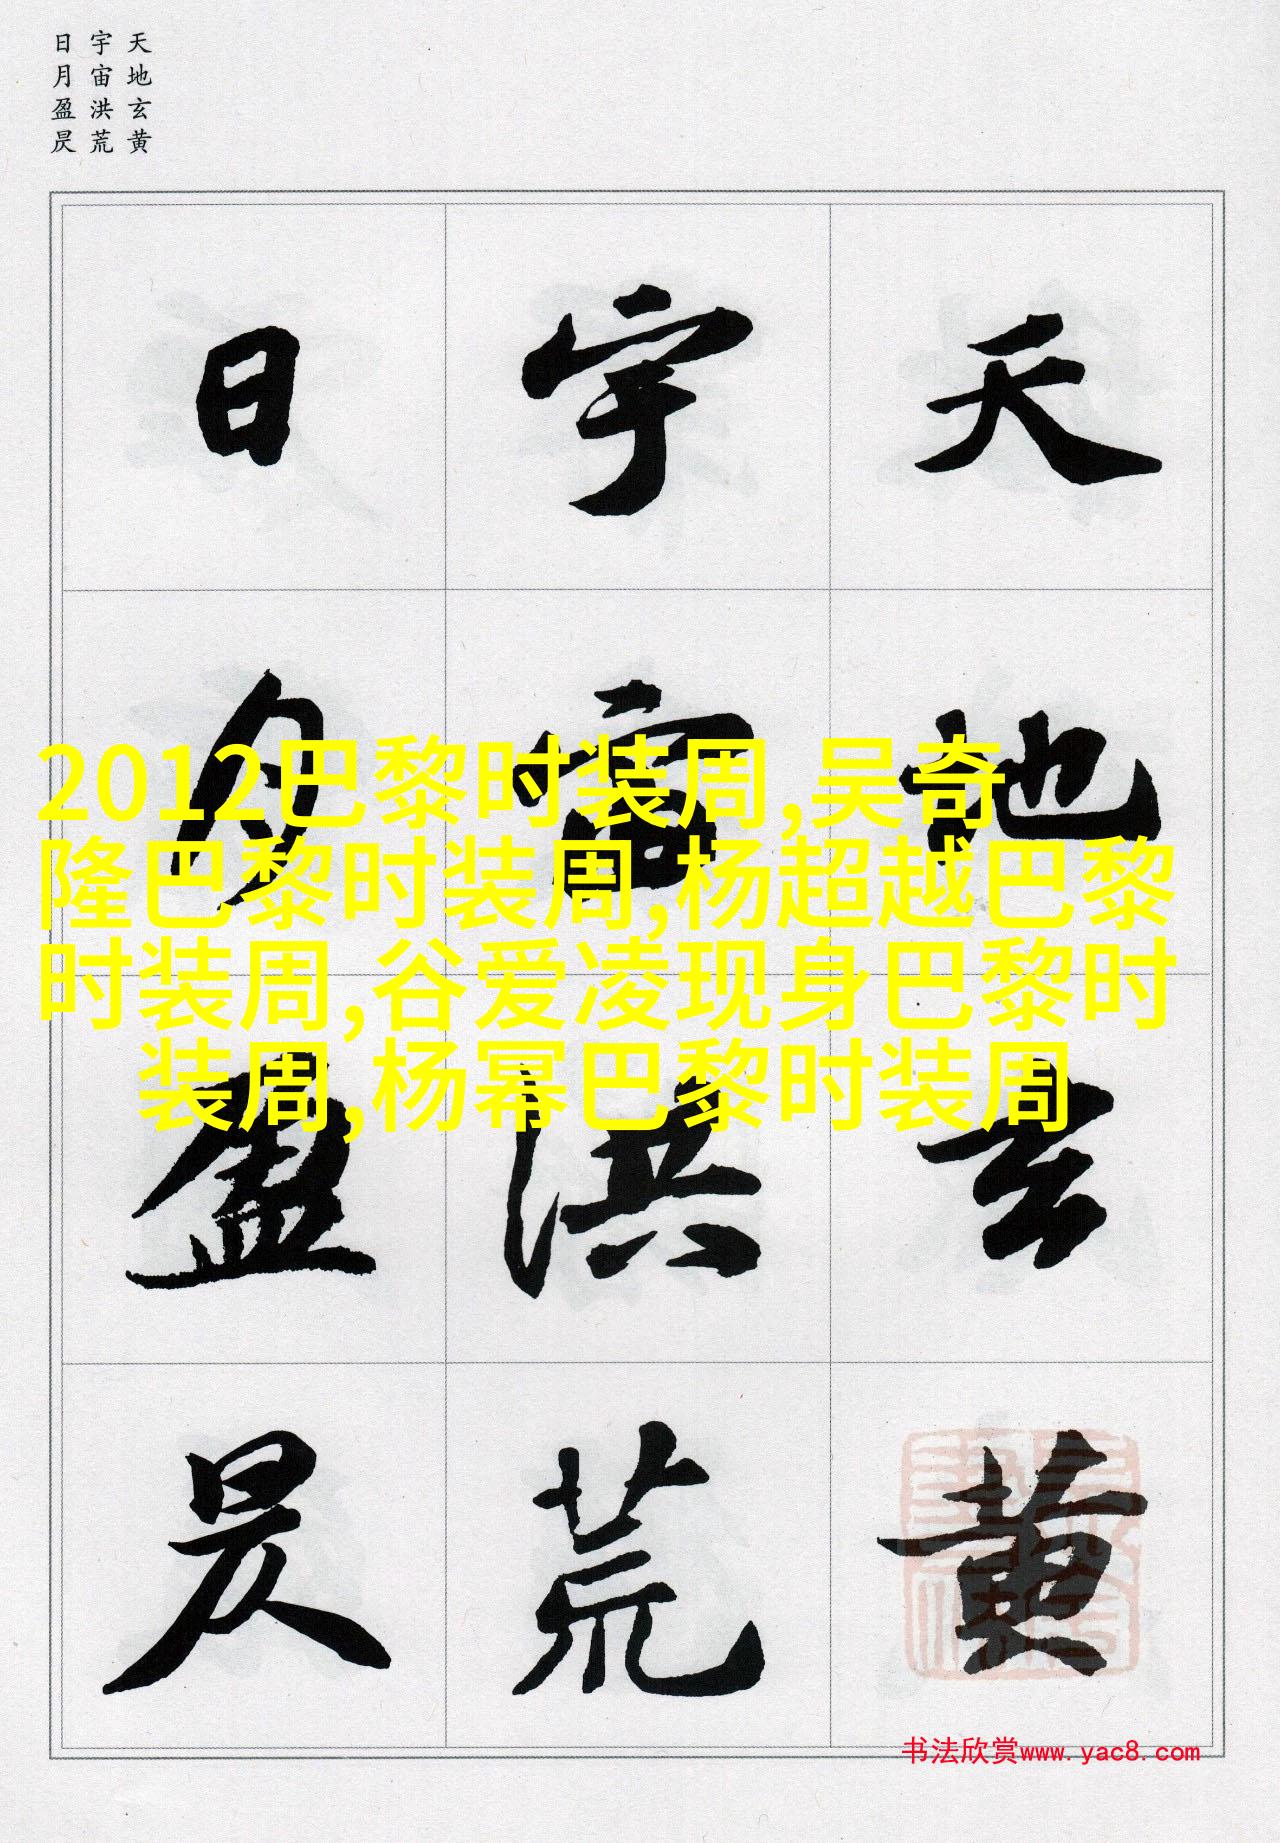 天地玄黄
宇宙洪荒
日月盈昃
天地玄黄
宇宙洪荒
日月盈昃
2012巴黎时装周,吴奇
隆巴黎时装周,杨超越巴黎
时装周,谷爱凌现身巴黎时
装周,杨幂巴黎时装周
书法欣赏www.yac8.com